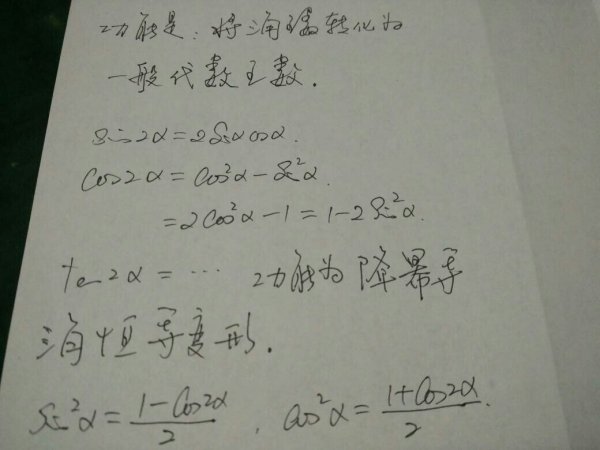 功能是：将三角函数转化为
一般代数函数.
sin2α=2sinαcosα.
cos2α=cos²α-sin²α.
=2cos²α-1=1-2sin²α.
tan2α=… 功能为降幂等
三角恒等变形.
sin²α=(1-cos2α)/2 , cos²α=(1+cos2α)/2.